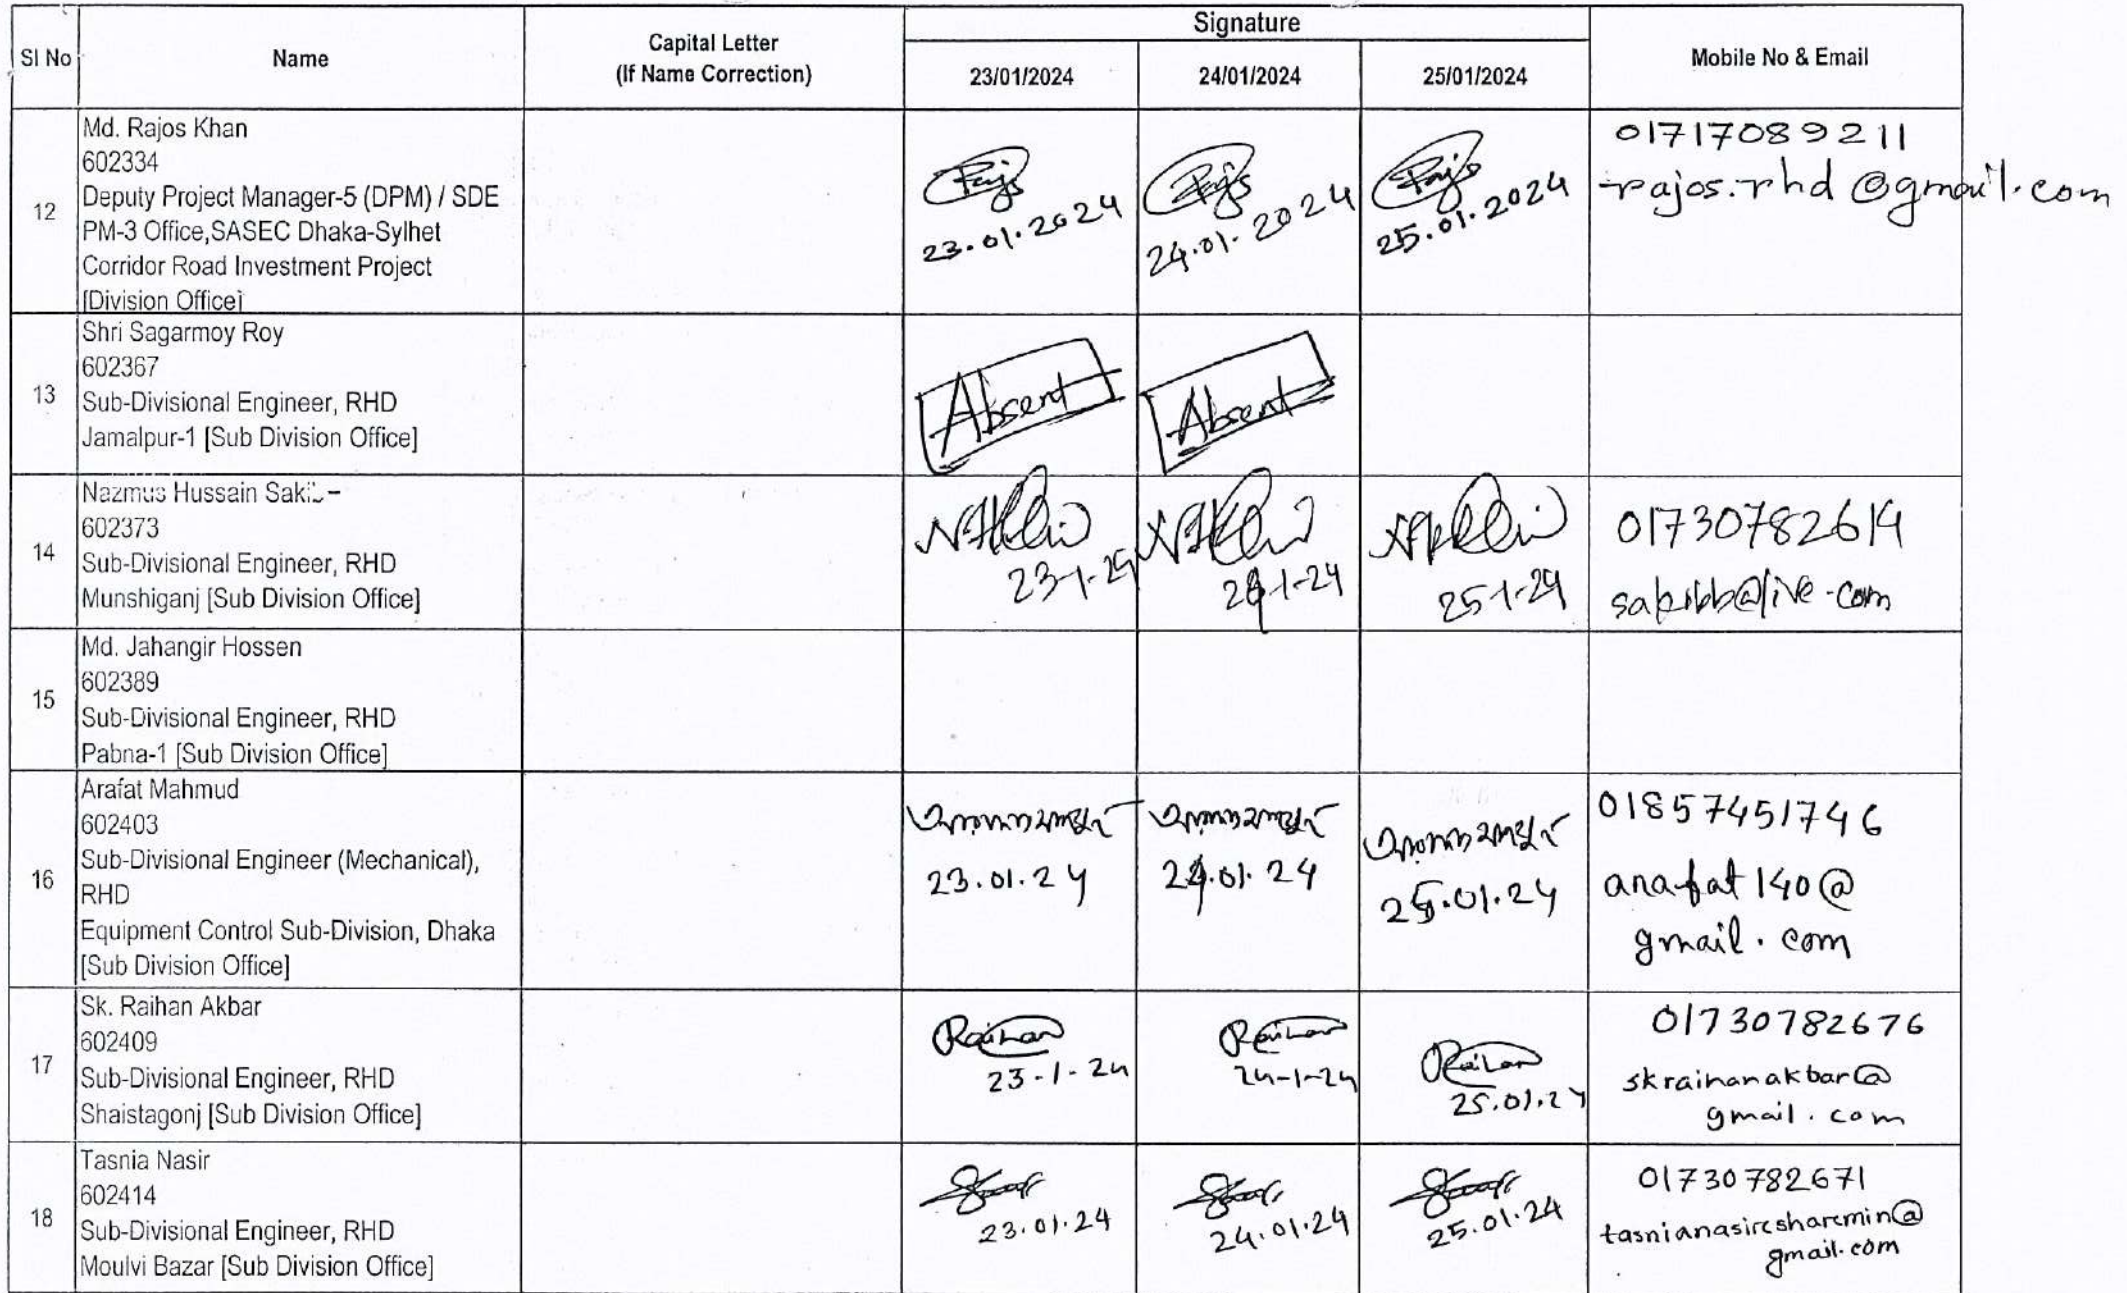 Sl No
Name
Capital Letter
(If Name Correction)
Signature
23/01/2024
24/01/2024
25/01/2024
Mobile No & Email
12
Md. Rajos Khan
602334
Deputy Project Manager-5 (DPM) / SDE
PM-3 Office,SASEC Dhaka-Sylhet
Corridor Road Investment Project
[Division Office]
23.01.2024
24.01.2024
25.01.2024
01717089211
rajos.rhd@gmail.com
13
Shri Sagarmoy Roy
602367
Sub-Divisional Engineer, RHD
Jamalpur-1 [Sub Division Office]
Absent
Absent
14
Nazmus Hussain Sakib
602373
Sub-Divisional Engineer, RHD
Munshiganj [Sub Division Office]
23-1-24
24-1-24
25-1-24
01730782614
15
Md. Jahangir Hossen
602389
Sub-Divisional Engineer, RHD
Pabna-1 [Sub Division Office]
16
Arafat Mahmud
602403
Sub-Divisional Engineer (Mechanical),
RHD
Equipment Control Sub-Division, Dhaka
[Sub Division Office]
23.01.24
24.01.24
25.01.24
01857451746
arafat140@
gmail.com
17
Sk. Raihan Akbar
602409
Sub-Divisional Engineer, RHD
Shaistagonj [Sub Division Office]
Raihan
23-1-24
Raihan
24-1-24
Raihan
25.01.24
01730782676
skraihanakbar@
gmail.com
18
Tasnia Nasir
602414
Sub-Divisional Engineer, RHD
Moulvi Bazar [Sub Division Office]
23.01.24
24.01.24
25.01.24
01730782671
gmail.com